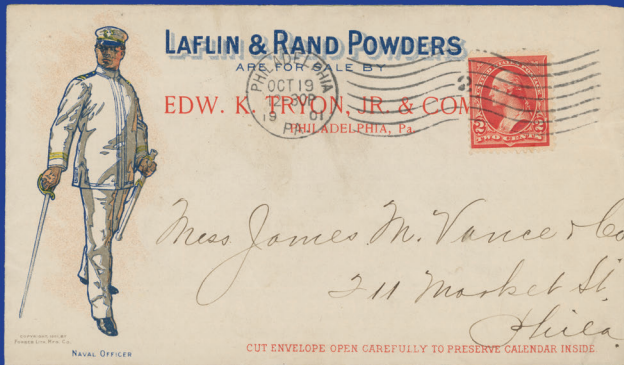 LAFLIN & RAND POWDERS
ARE FOR SALE BY
EDW. K. TRYON, JR. & COM
PHILADELPHIA, Pa.
PHILADELPHIA
OCT 19
2 30P
19 01
PA
TWO CENTS
Mess James M. Vance & Co
211 Market St.
Phila
NAVAL OFFICER
CUT ENVELOPE OPEN CAREFULLY TO PRESERVE CALENDAR INSIDE